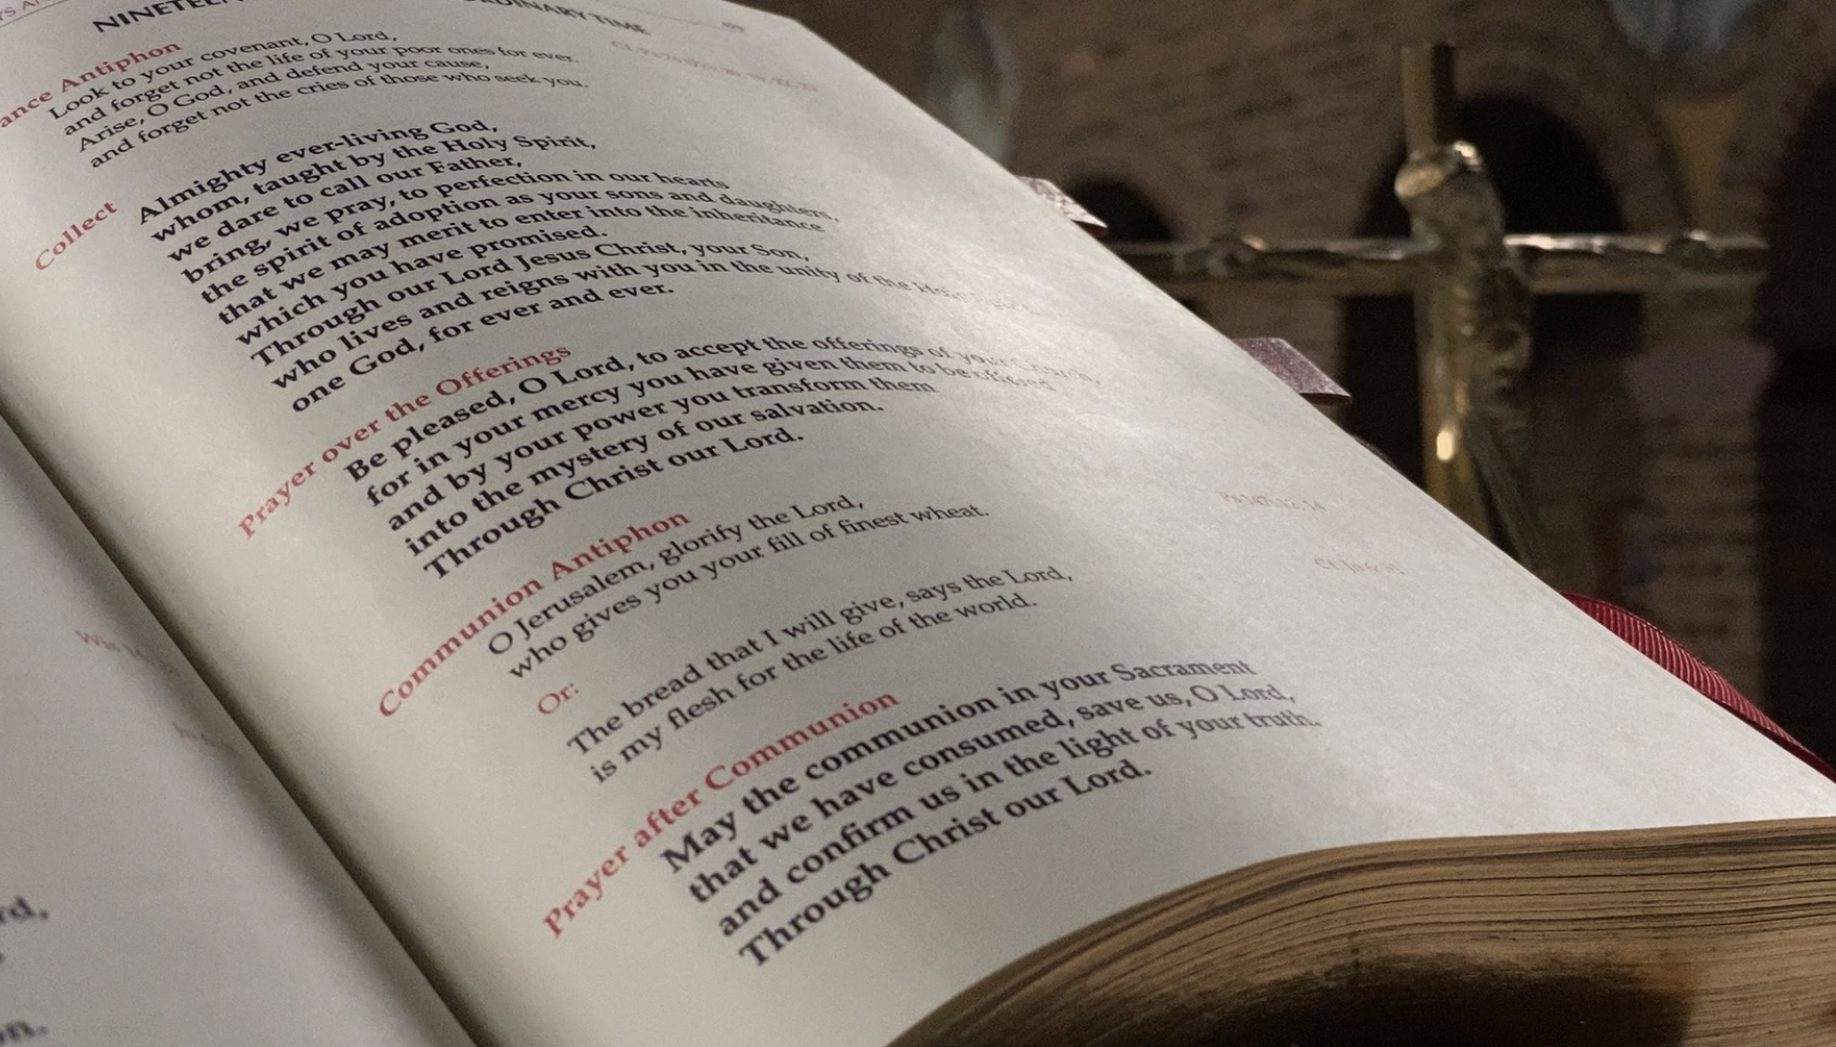 ORDINARY TIME
Entrance Antiphon
Look to your covenant, O Lord,
and forget not the life of your poor ones for ever.
Arise, O God, and defend your cause,
and forget not the cries of those who seek you.
Collect
Almighty ever-living God,
whom, taught by the Holy Spirit,
we dare to call our Father,
bring, we pray, to perfection in our hearts
the spirit of adoption as your sons and daughters,
that we may merit to enter into the inheritance
which you have promised.
Through our Lord Jesus Christ, your Son,
who lives and reigns with you in the unity of the Holy Spirit,
one God, for ever and ever.
Prayer over the Offerings
Be pleased, O Lord, to accept the offerings of your Church,
for in your mercy you have given them to be offered
and by your power you transform them
into the mystery of our salvation.
Through Christ our Lord.
Communion Antiphon
O Jerusalem, glorify the Lord,
who gives you your fill of finest wheat.
Or:
The bread that I will give, says the Lord,
is my flesh for the life of the world.
Prayer after Communion
May the communion in your Sacrament
that we have consumed, save us, O Lord,
and confirm us in the light of your truth.
Through Christ our Lord.